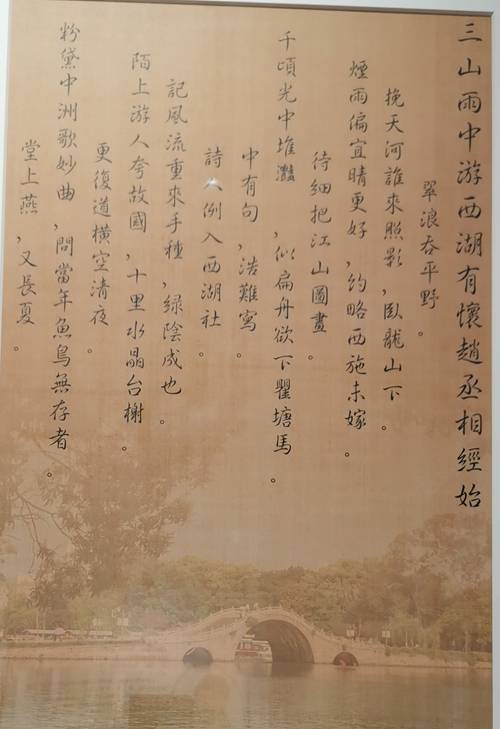 三山雨中游西湖有懷趙丞相經始
翠浪吞平野。
挽天河誰來照影,臥龍山下。
煙雨偏宜晴更好,約略西施未嫁。
待細把江山圖畫。
千頃光中堆灔,似扁舟欲下瞿塘馬。
中有句,浩難寫。
詩人例入西湖社。
記風流重來手種,綠陰成也。
陌上游人夸故國,十里水晶台榭。
更復道橫空清夜。
粉黛中洲歌妙曲,問當年魚鳥無存者。
堂上燕,又長夏。